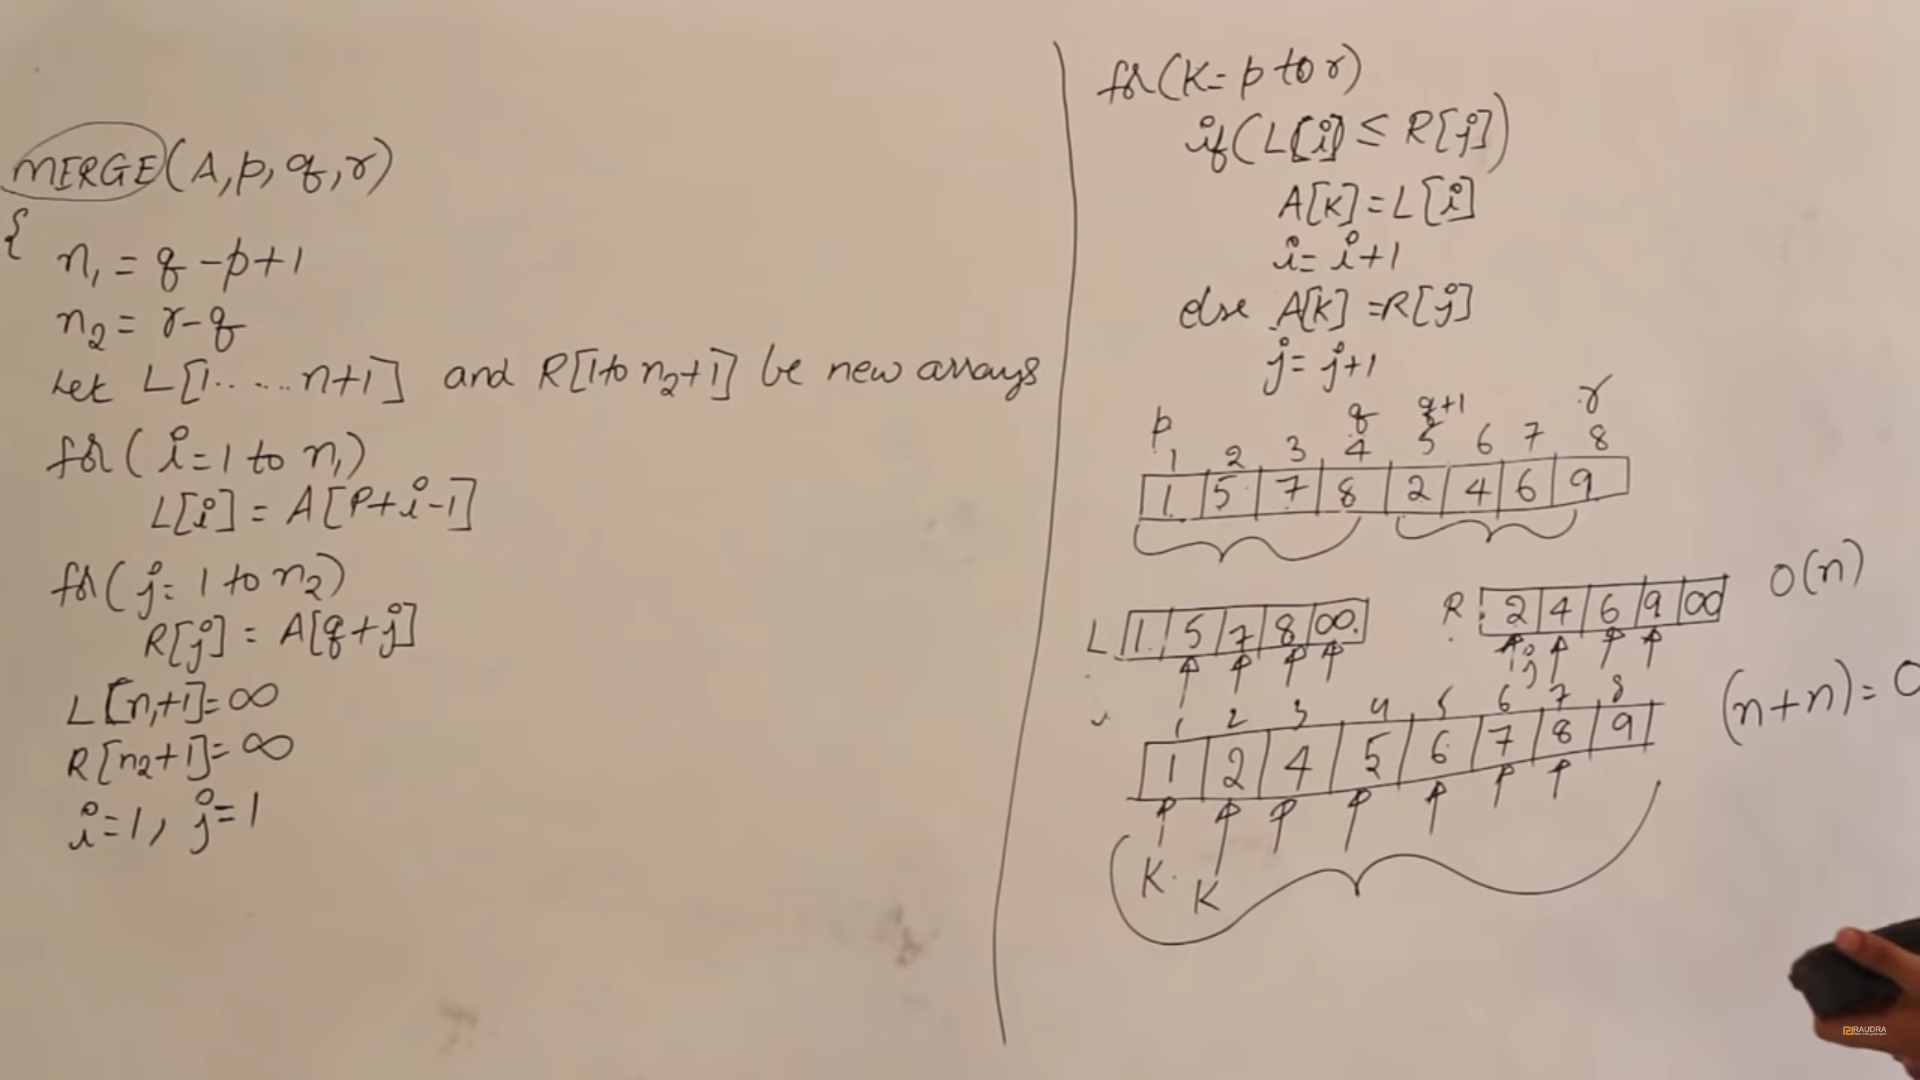 MERGE(A,p,q,r)
{
n₁ = q-p+1
n₂ = r-q
Let L[1......n+1] and R[1 to n₂+1] be new arrays
for(i=1 to n₁)
L[i] = A[P+i-1]
for(j=1 to n₂)
R[j] = A[q+j]
L[n₁+1]=∞
R[n₂+1]=∞
i=1, j=1
for(K=p to r)
if(L[i] ≤ R[j])
A[K]=L[i]
i=i+1
else A[K]=R[j]
j=j+1
p q q+1 r
1 2 3 4 5 6 7 8
1 5 7 8 2 4 6 9
L 1 5 7 8 ∞
R 2 4 6 9 ∞
O(n)
i j
1 2 3 4 5 6 7 8
1 2 4 5 6 7 8 9
(n+n)=0
K K
RAUDRA